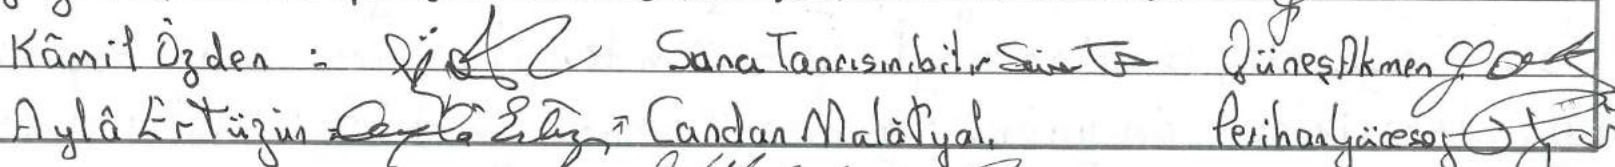 Kâmil Özden : Sana Tanrısınıbilir Güneş Akmen
Aylâ Ertüzün Candan Malatyal. Perihan Yücesoy